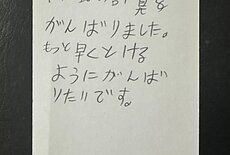 算を
がんばりました。
もっと早くとける
ようにがんば
りたいです。